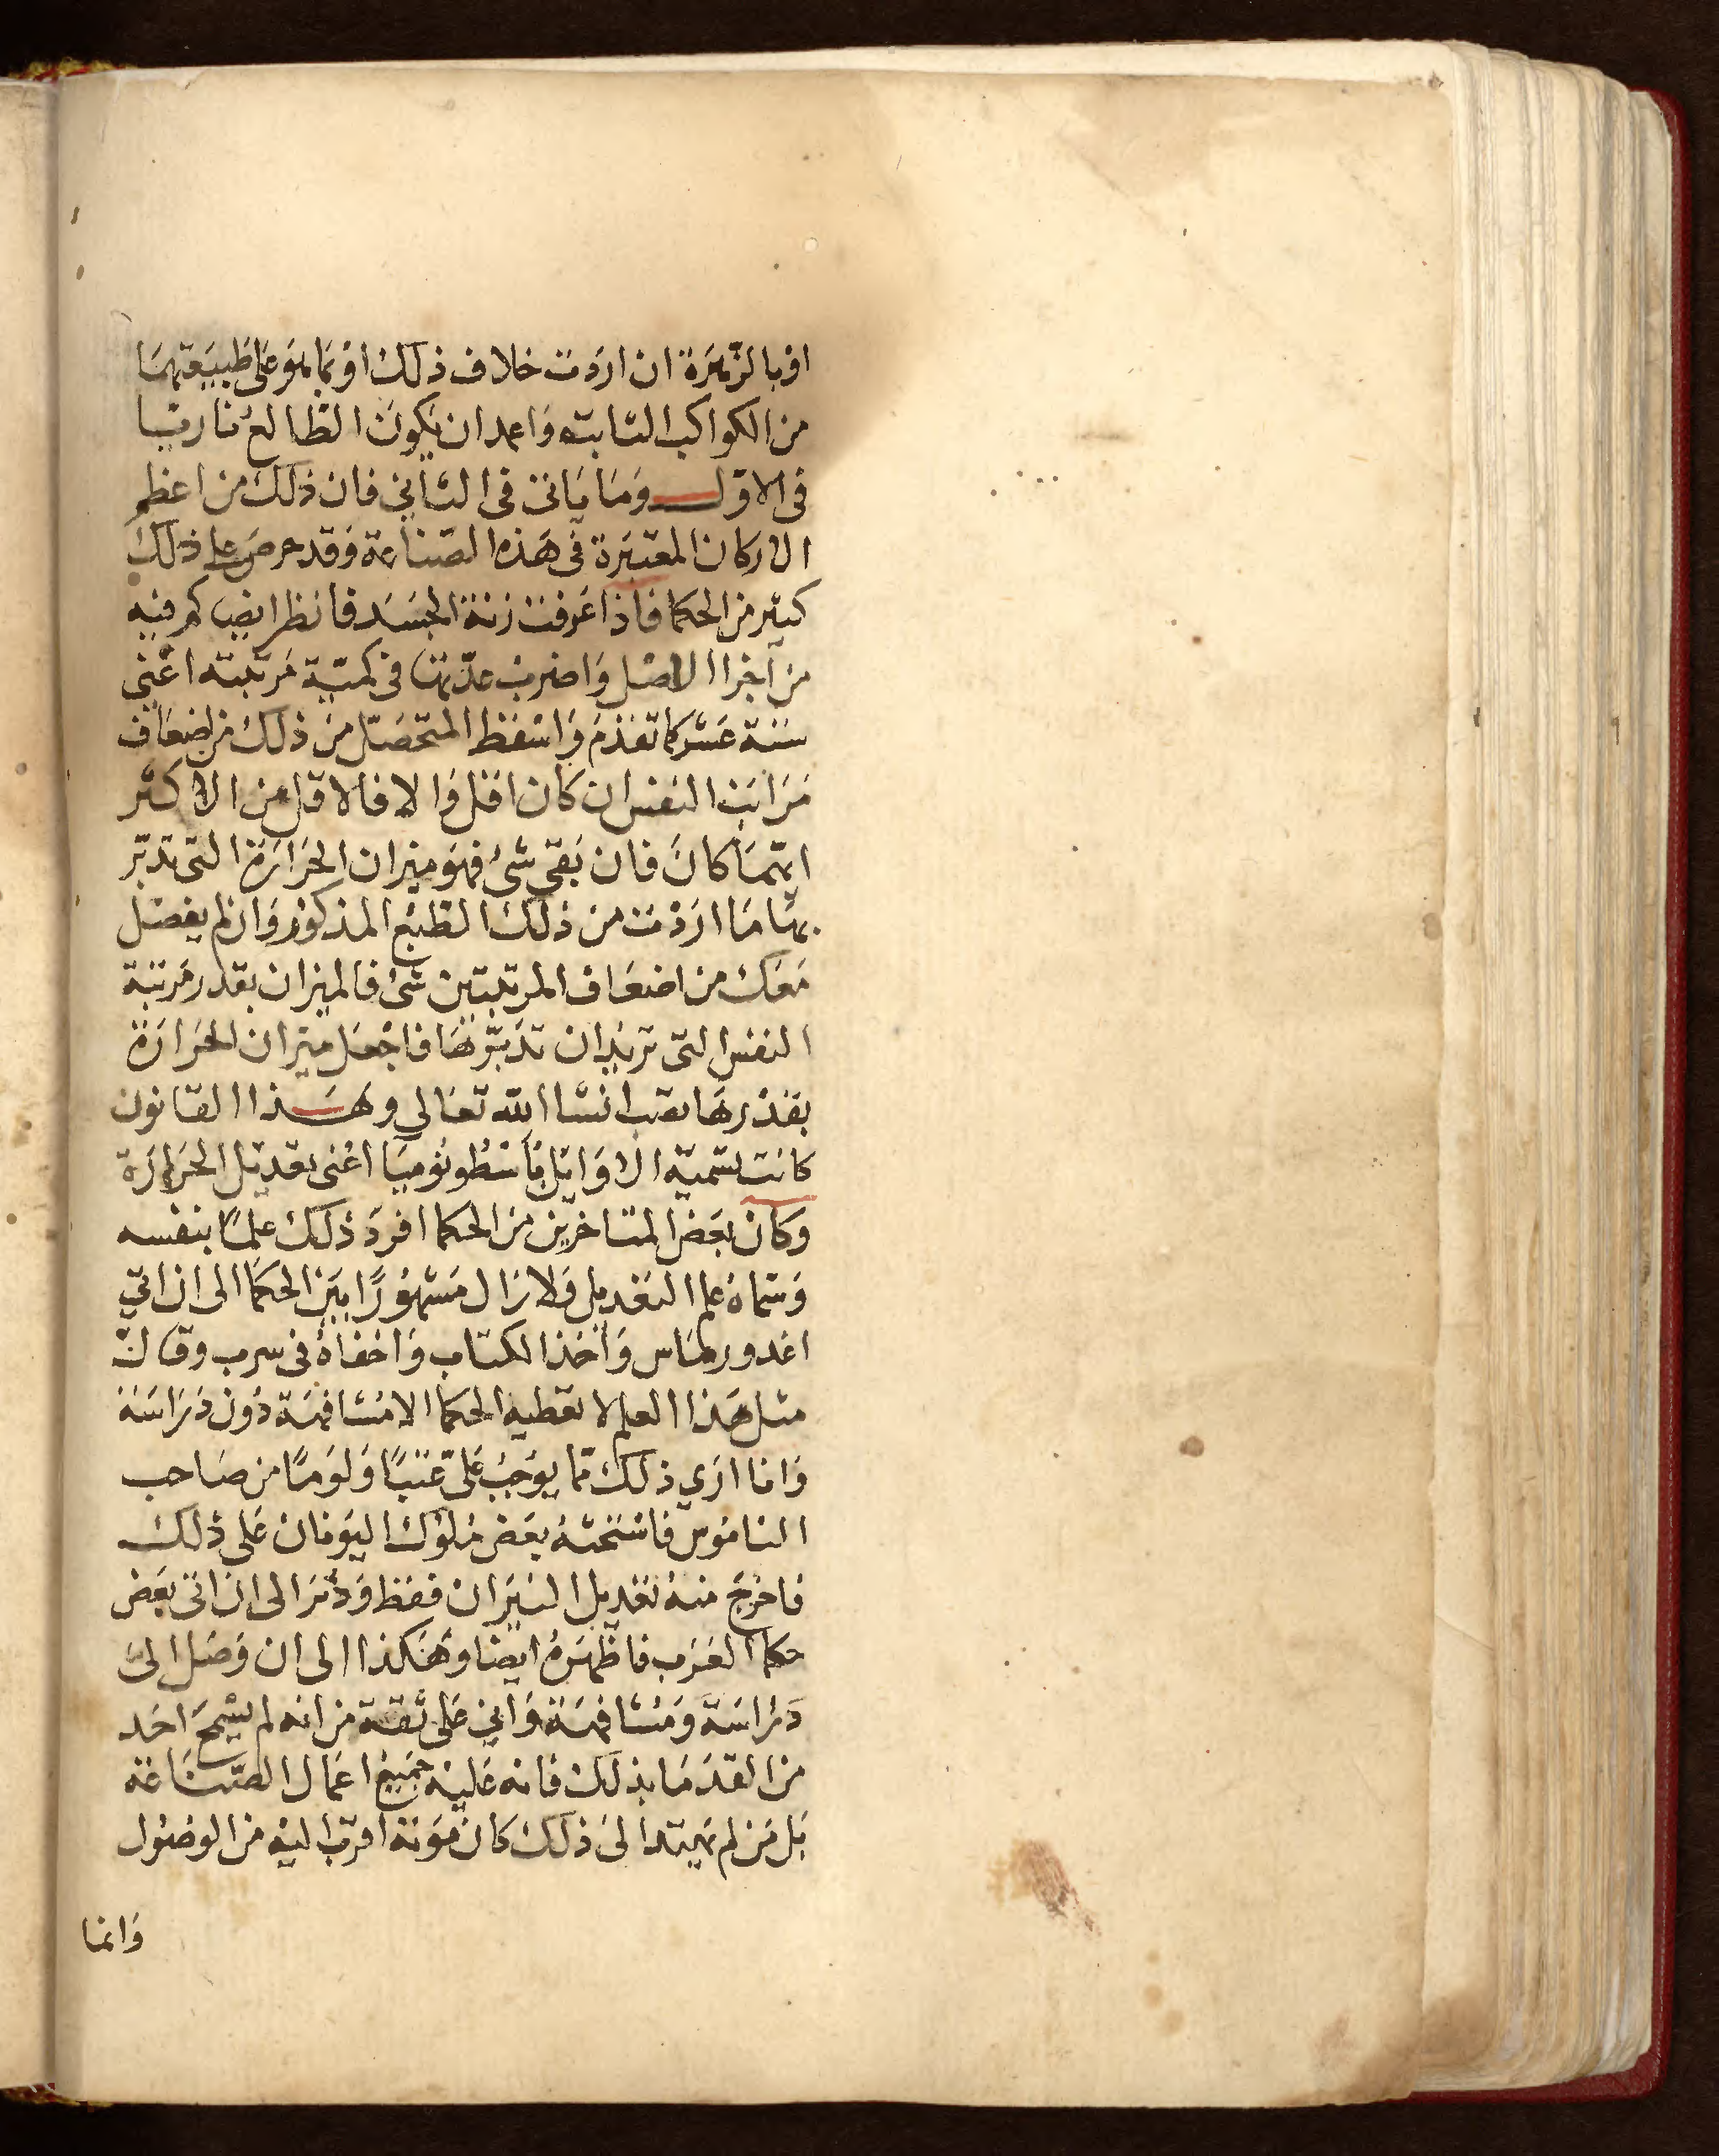 او بالزّهَرَة ان ارَدت خلاف ذلك اوْ بما هو عَلى طبيَعتهمَا
من الكواكب الثابته وَاعمد ان يكونَ الطالعُ ناريًا
فى الاوّل وَمَا يَاتى فى الثاني فان ذلك من اعظم
الاركان المعتبَرة فى هَذه الصّناعة وَقد حرصَ على ذلك
كثير من الحكما فاذا عَرفت زنة الجسَد فانظر ايضا كم فيه
من اجزا الاصْل وَاضرب عدّتها فى كميّة مَرتبته اعْني
ستة عَشر كما تقدّم وَاسْقط المتحصّل من ذلك من اضعَاف
مَرَاتب النفس ان كان اقل وَالا فالاقل من الاكثر
ايهمَا كانَ فان بَقي شئ فهوَ ميزان الحَرارَة التى تدبّر
بهَا مَا ارَدْت من ذلك الطبْع المذكور وَان لم يفضل
مَعَك من اضعَاف المرتبتين شئ فالميزان بقدر مَرتبة
النفس التى تريد ان تدَبّرهَا فاجْعَل ميزان الحَرارَة
بقدْرهَا تصب انشا الله تعَالى وهَذا القانون
كانت تسَمّيه الاوَايل باسْطونوميَا اعْنى تعديْل الحَرارَة
وَكان بعَض المتاخرين من الحكما افردَ ذلك علمًا بنفسه
وَسَماهُ علم التعْديل وَلا زال مَشهوُرًا بَين الحكَما الى ان اتى
اغدوريماس وَاخذ الكتاب وَاخفاهُ فى سرب وقال
مثل هَذا العلم لا تعَطيه الحكما الا مشافهَة دُون دَراسَة
وَانا ارَي ذلك ممّا يوجبُ عَليّ عَتبًا وَلوَمًا من صَاحب
الناموُس فاسْتحثهُ بعَض ملوُك اليوَنان عَلى ذلك
فاخرَج منهُ تعْديل النيَران فقط وَدثرَ الى ان اتى بعَض
حكما العَرَب فاظهَرهُ ايضا وهَكذا الى ان وَصَل الىَ
دَراسَة وَمُشافهَة وَاني عَلى ثقة من انه لم يسْمَحَ احَد
من القدَمَا بذلك فانه عَليْه جَميْع اعمَال الصّناعَة
بَل مَن لم يَهتد الىَ ذلك كان مَوَته اقرَب اليْه من الوصوُل
وَانما